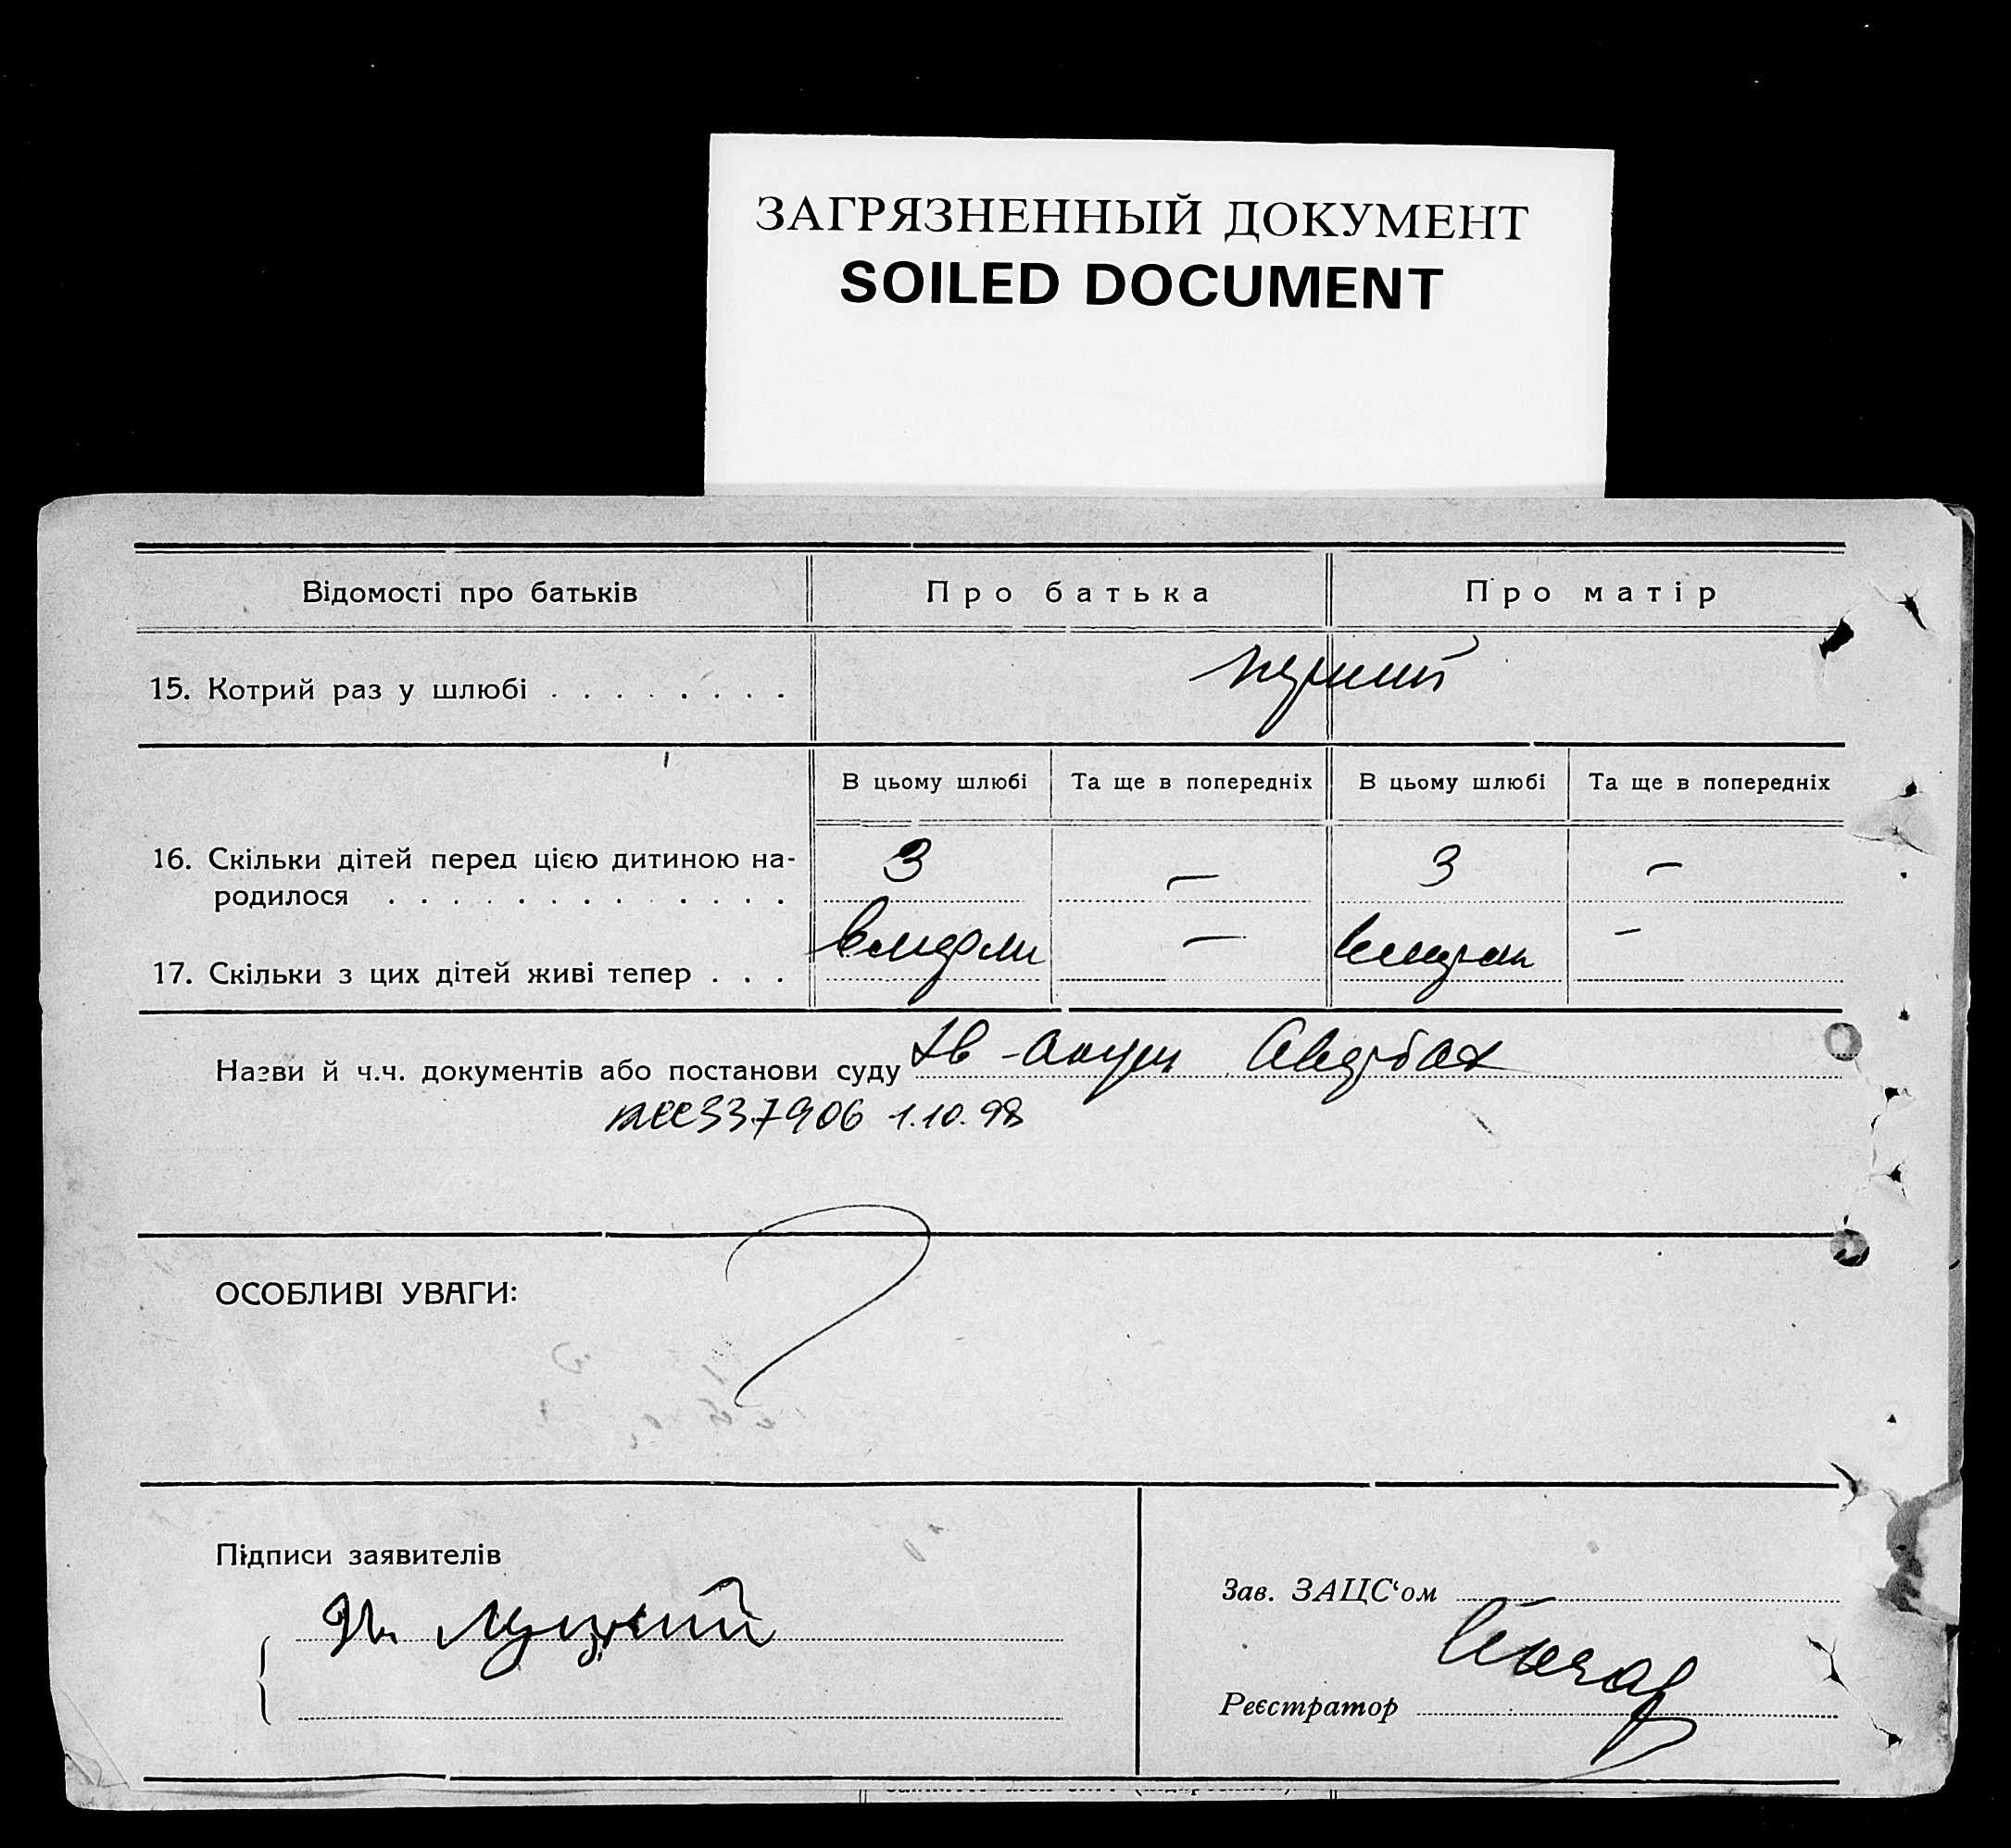 ЗАГРЯЗНЕННЫЙ ДОКУМЕНТ
SOILED DOCUMENT
Відомості про батьків Про батька Про матір
15. Котрий раз у шлюбі . . . . . . . . перший
В цьому шлюбі Та ще в попередніх В цьому шлюбі Та ще в попередніх
16. Скільки дітей перед цією дитиною на-
родилося . . . . . . . . . . . . . 3 — 3 —
17. Скільки з цих дітей живі тепер . . . вмерли — вмерли —
Назви й ч.ч. документів або постанови суду
337906 1.10.98
ОСОБЛИВІ УВАГИ:
Підписи заявителів
Луцкий
Зав. ЗАЦС‘ом
Реєстратор